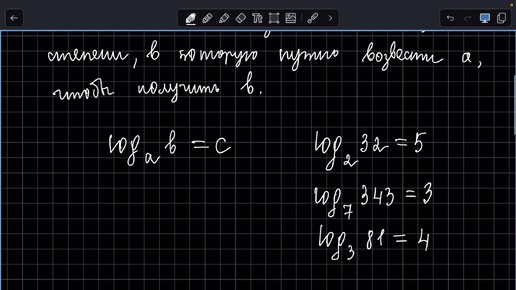 степени, в которую нужно возвести a,
чтобы получить b.
logₐ b = c
log₂ 32 = 5
log₇ 343 = 3
log₃ 81 = 4